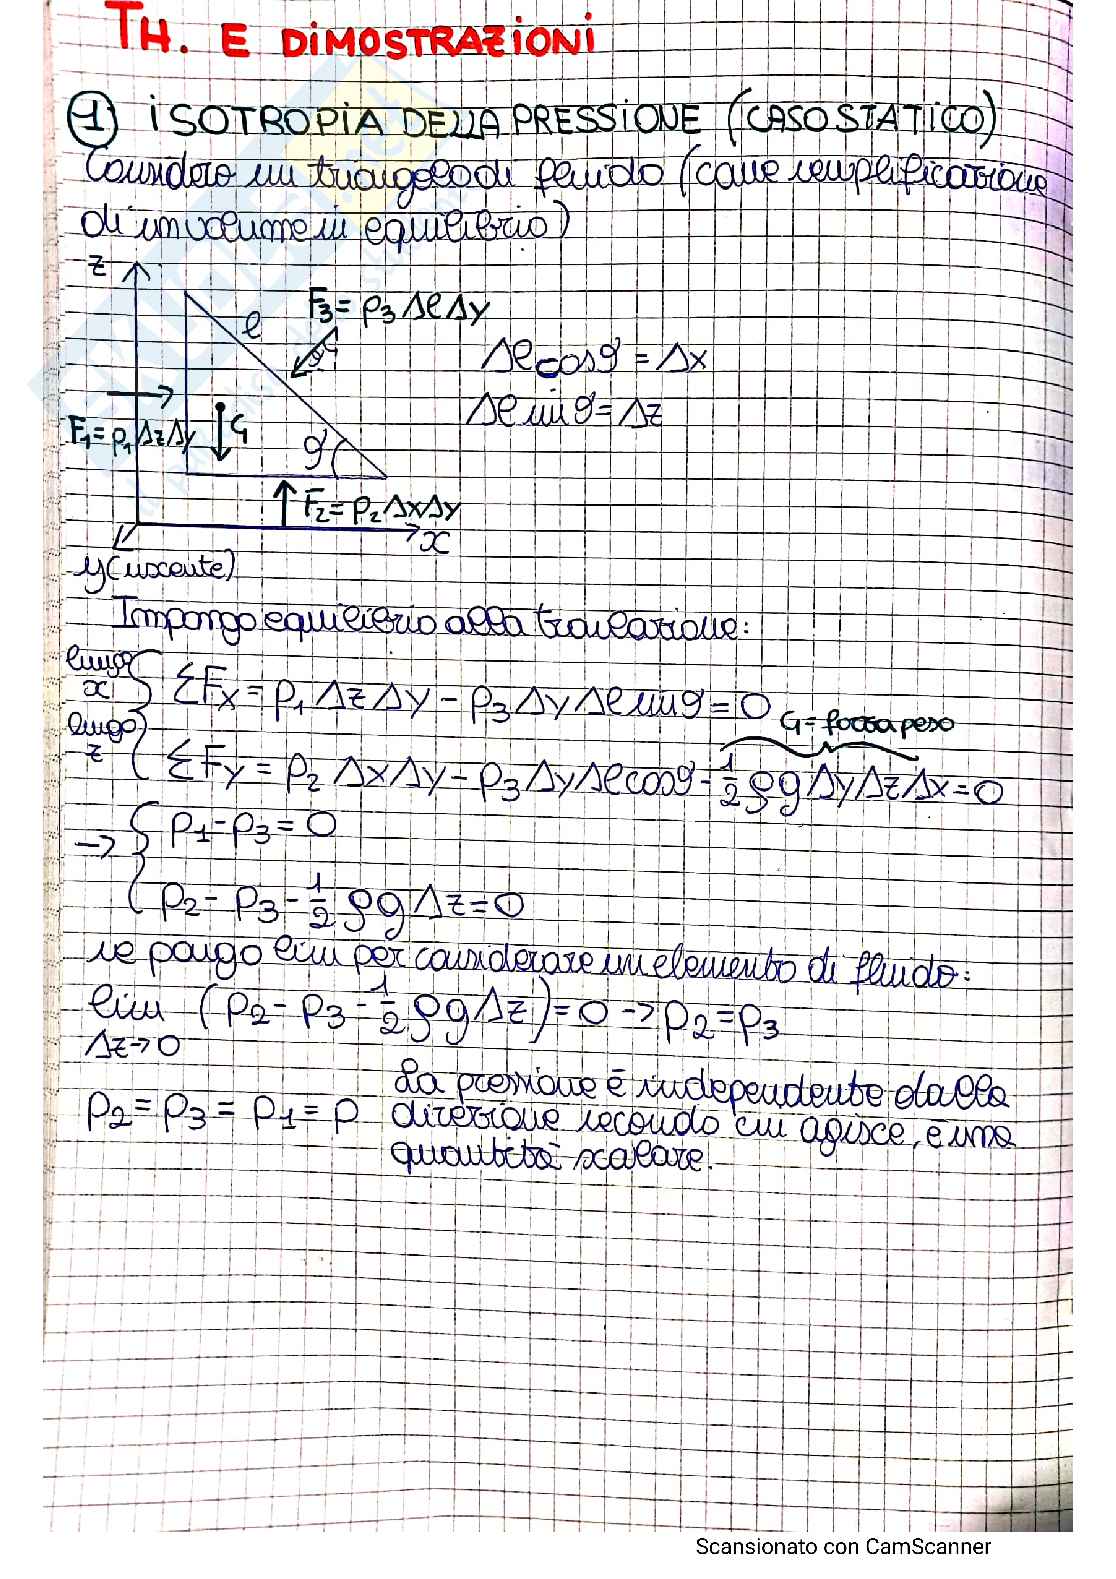 TH. E DIMOSTRAZIONI
1 ISOTROPIA DELLA PRESSIONE (CASO STATICO)
Considero un triangolo di fluido (come semplificazione
di un volume in equilibrio)
z
l
F3 = p3 Δl Δy
Δl cosϑ = Δx
Δl sinϑ = Δz
F1 = p1 Δz Δy
G
ϑ
F2 = p2 Δx Δy
x
y (uscente)
Impongo equilibrio alla traslazione:
lungo x { ΣFx = p1 Δz Δy - p3 Δy Δl sinϑ = 0
G = forza peso
lungo z { ΣFy = p2 Δx Δy - p3 Δy Δl cosϑ - 1/2 ρg Δy Δz Δx = 0
→ { p1 - p3 = 0
p2 - p3 - 1/2 ρg Δz = 0
se pongo lim per considerare un elemento di fluido:
lim (p2 - p3 - 1/2 ρg Δz) = 0 → p2 = p3
Δz→0
La pressione è indipendente dalla
p2 = p3 = p1 = p direzione secondo cui agisce, è una
quantità scalare.
Scansionato con CamScanner